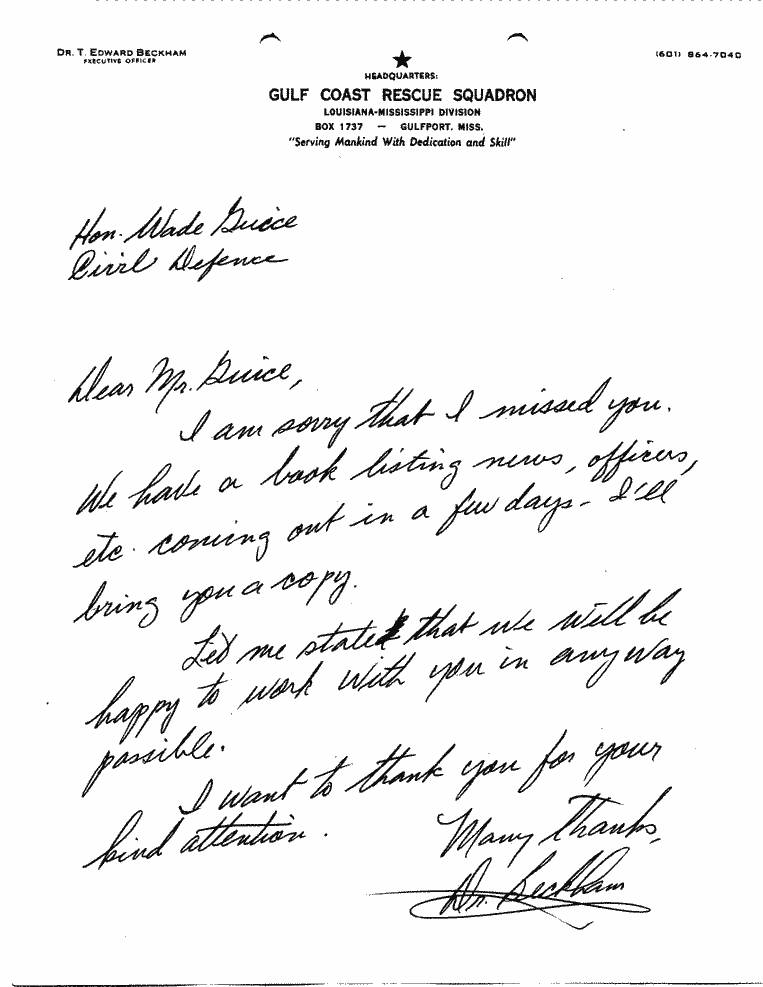 DR. T. EDWARD BECKHAM
EXECUTIVE OFFICER
(601) 864-7040
HEADQUARTERS:
GULF COAST RESCUE SQUADRON
LOUISIANA-MISSISSIPPI DIVISION
BOX 1737 — GULFPORT, MISS.
"Serving Mankind With Dedication and Skill"
Hon. Wade Guice
Civil Defence
Dear Mr. Guice,
I am sorry that I missed you.
We have a book listing news, officers,
etc. coming out in a few days - I'll
bring you a copy.
Let me state that we will be
happy to work with you in any way
possible.
I want to thank you for your
kind attention.
Many Thanks,
Dr. Beckham